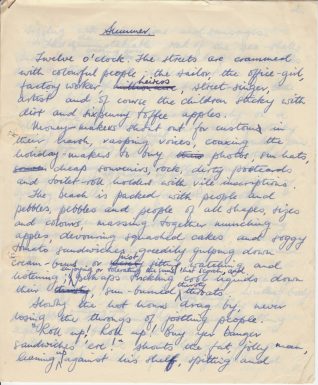 Summer.
Twelve o'clock. The streets are crammed
with colourful people, the sailor, the office-girl,
factory worker, beikos, street singer,
artist and of course the children sticky with
dirt and sixpenny toffee apples.
Money-makers shout out for custom in
their harsh, rasping voices, coaxing the
holiday-makers to buy photos, sun hats,
cheap souvenirs, rock, dirty postcards
and toilet-roll holders with vile inscriptions.
The beach is packed with people and
pebbles, pebbles and people of all shapes, sizes
and colours, massing together munching
apples, devouring squashed cakes and soggy
tomato sandwiches, greedily gulping down
cream-buns, or just sitting, watching and
listening, perhaps trickling cool liquids down
their sun-burned thirsty throats.
Slowly the hot hours drag by, never
losing the throngs of jostling people.
"Roll up! Roll up! Buy yer banger
sandwiches 'ere!" shouts the fat jolly man,
leaning against his shelf, spitting and